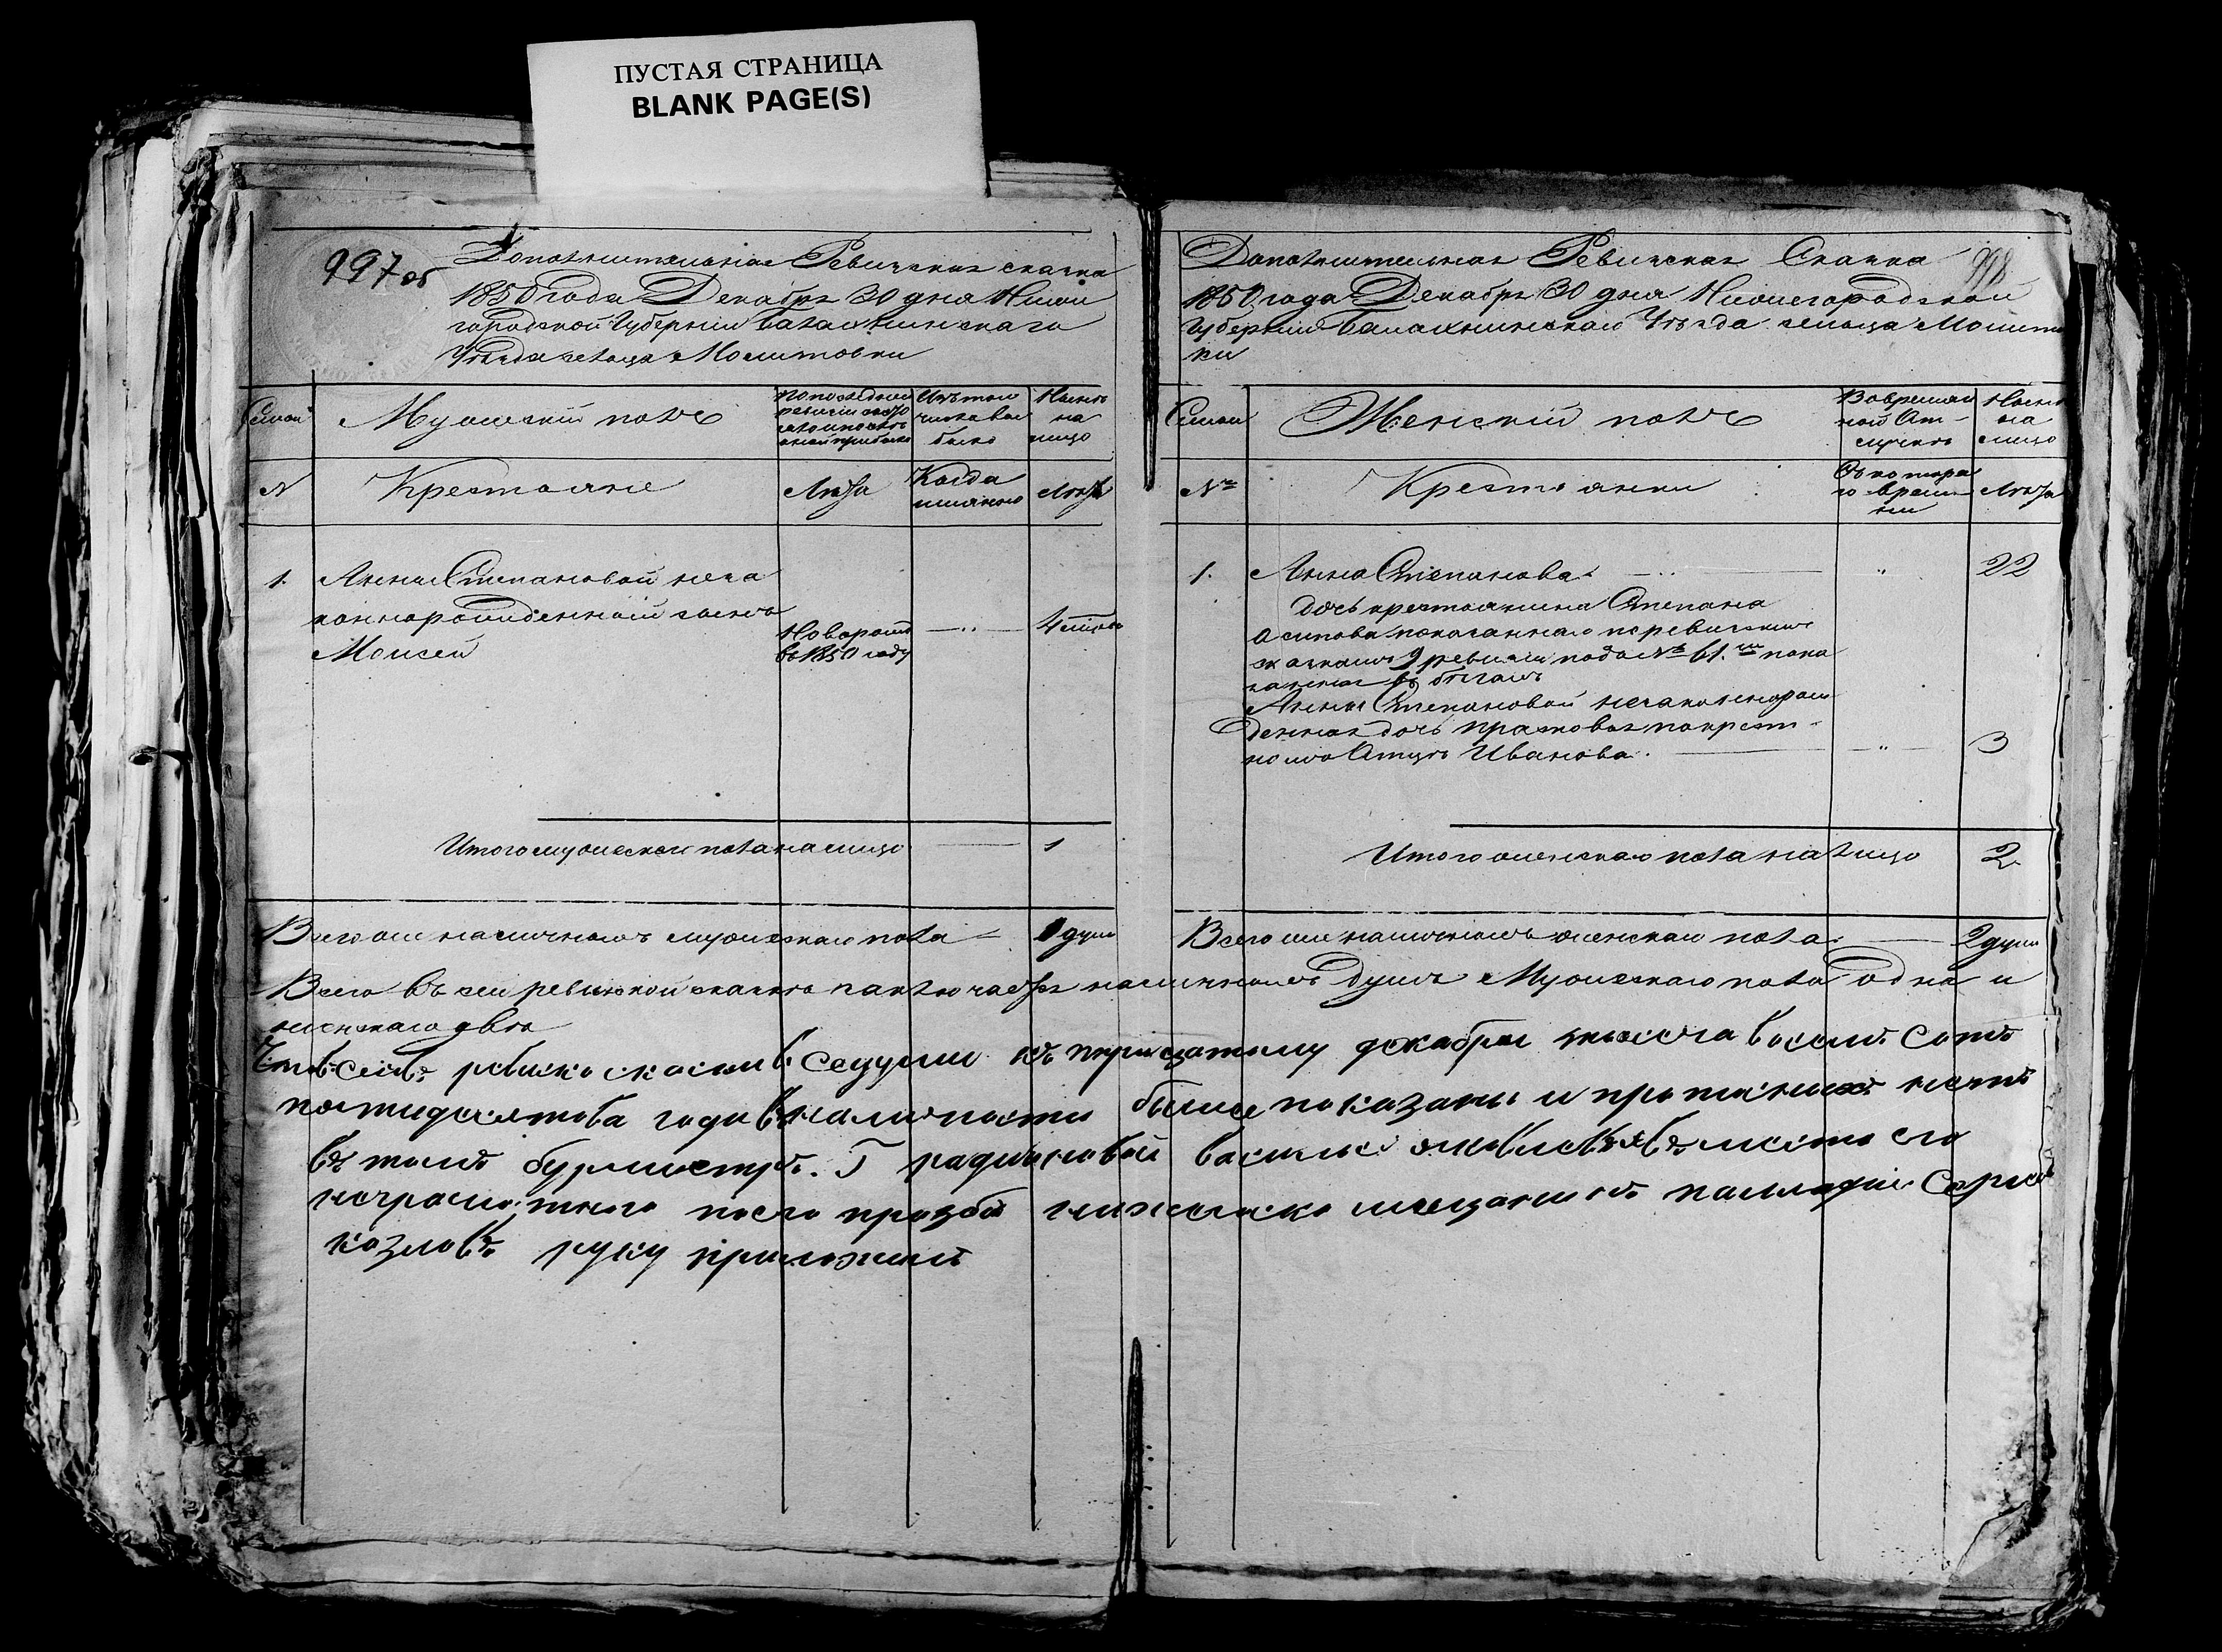 ПУСТАЯ СТРАНИЦА
BLANK PAGE(S)
997 об
Дополнительная Ревизская сказка
1850 года Декабря 30 дня Ниже
городской Губернии Балахнинскаго
Уѣзда сельца Молитовки
Семьи
Мужескій полъ
По последней
ревизіи состо
яло и послѣ
оной прибыло
Изъ того
числа вы
было
Нынѣ
на
лицо
№
Крестьяне
Лѣта
Когда
именно
Лѣта
1.
Анны Степановой неза
коннорожденный сынъ
Моисей
Новорожд
въ 1850 году
4
Итого мужеска пола на лицо
1
Всего же наличныхъ мужескаго пола
1 душа
Дополнительная Ревизская Сказка
998
1850 года Декабря 30 дня Нижегородской
Губернии Балахнинскаго Уѣзда сельца Молитов
ки
Семьи
Женскій полъ
Во времен
ной От-
лучкѣ
Нынѣ
на
лицо
№
Крестьянки
Съ котора
го време
ни
Лѣта
1.
Анна Степанова
22
дочь крестьянина Степана
Осипова показаннаго по ревизскимъ
сказкамъ 9 ревизіи подъ № 61.мъ пока
занная въ бѣгахъ
Анны Степановой незаконнорож
денная дочь Прасковья по крест
ному Отцу Иванова.
3
Итого женскаго пола на лицо
2
Всего же наличныхъ женскаго пола
2 души
Всего въ сей ревизской сказкѣ заключается наличныхъ душъ Мужескаго пола одна и
женскаго двѣ
Что все въ ревиско скаски седуши къ тридцатому декабри тысеча восемь сотъ
потидесятова года в наличности были показаны и протаиныхъ нетъ
въ томъ бурмистръ. Г родионовой василье яковлевъ в место ево
неграмотнаго по его прозбѣ мещанинъ серге
козловъ руку приложилъ